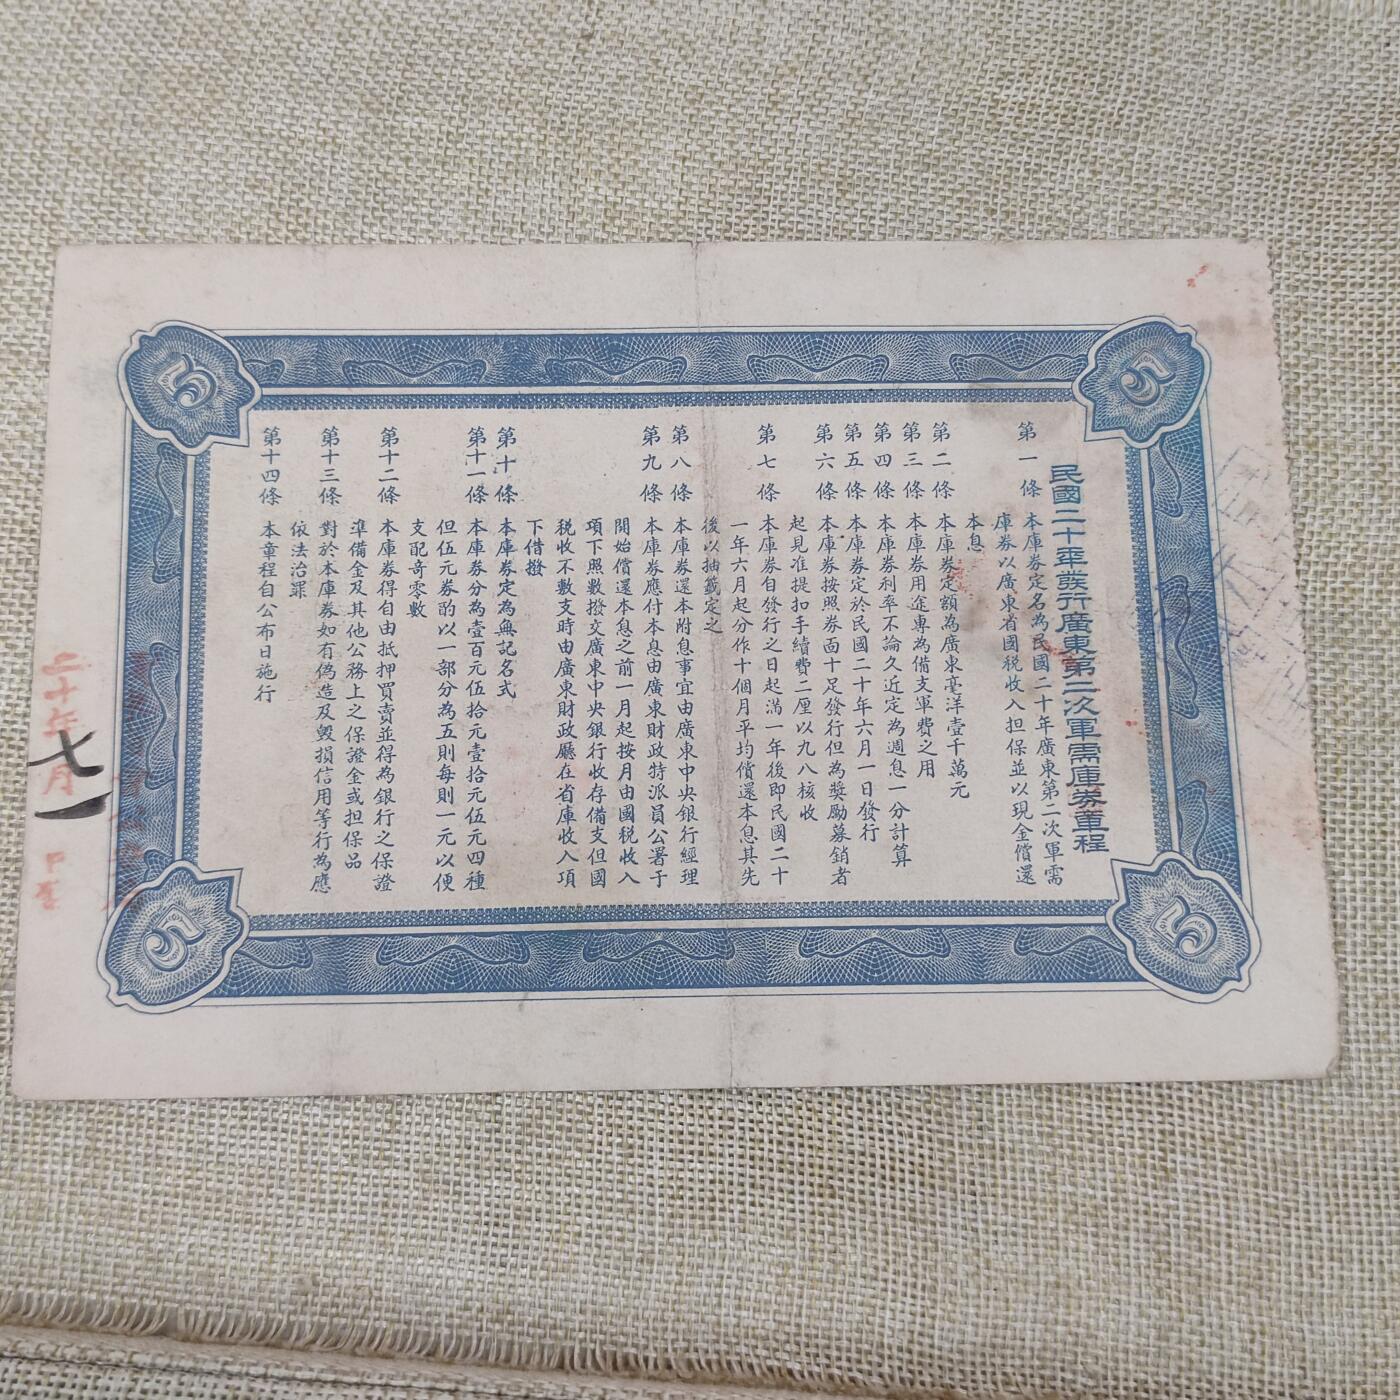 民國二十年發行廣東第二次軍需庫券章程
第一條 本庫券定名為民國二十年廣東第二次軍需
庫券以廣東省國税收入担保並以現金償還
本息
第二條 本庫券定額為廣東毫洋壹千萬元
第三條 本庫券用途專為備支軍費之用
第四條 本庫券利率不論久近定為週息一分計算
第五條 本庫券定於民國二十年六月一日發行
第六條 本庫券按照券面十足發行但為獎勵募銷者
起見准提扣手續費二厘以九八核收
第七條 本庫券自發行之日起滿一年後即民國二十
一年六月起分作十個月平均償還本息其先
後以抽籤定之
第八條 本庫券還本附息事宜由廣東中央銀行經理
第九條 本庫券應付本息由廣東財政特派員公署于
開始償還本息之前一月起按月由國税收入
項下照數撥交廣東中央銀行收存備支但國
税收不敷支時由廣東財政廳在省庫收入項
下借撥
第十條 本庫券定為無記名式
第十一條 本庫券分為壹百元伍拾元壹拾元伍元四種
但伍元券酌以一部分為五則每則一元以便
支配奇零數
第十二條 本庫券得自由抵押買賣並得為銀行之保證
準備金及其他公務上之保證金或担保品
第十三條 對於本庫券如有偽造及毀損信用等行為應
依法治罪
第十四條 本章程自公布日施行
5
5
5
5
二十年七月一日